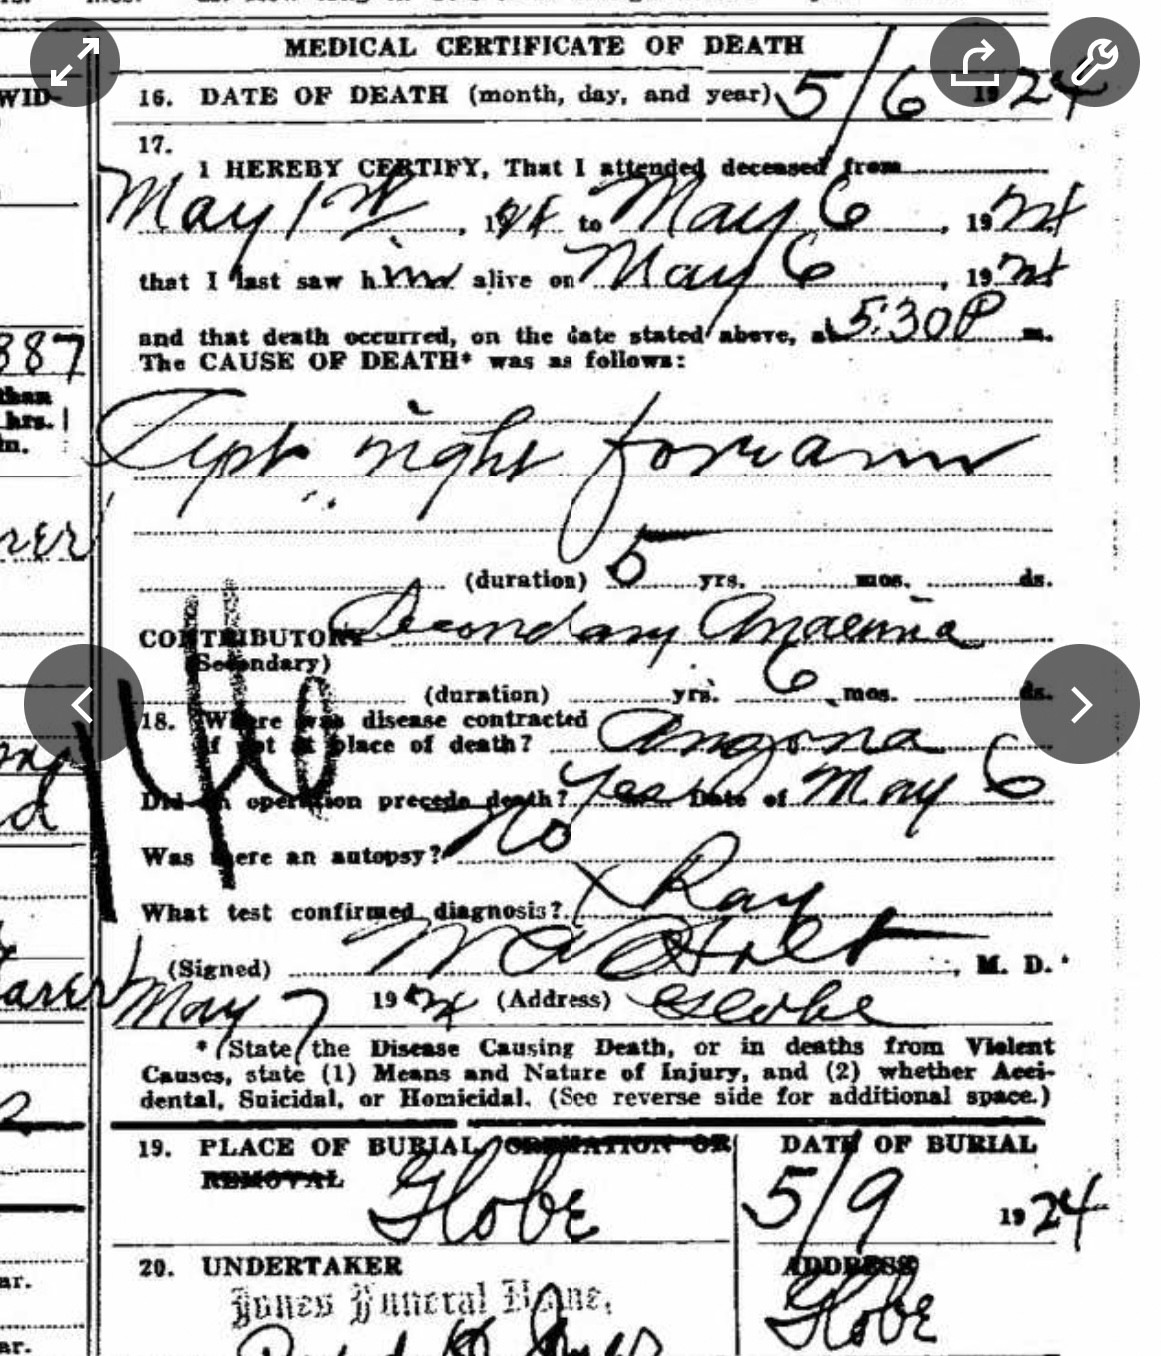 MEDICAL CERTIFICATE OF DEATH
16. DATE OF DEATH (month, day, and year) 5/6 1924
17.
I HEREBY CERTIFY, That I attended deceased from
May 1st, 1924 to May 6, 1924
that I last saw him alive on May 6, 1924
and that death occurred, on the date stated above, at 5:30 P m.
The CAUSE OF DEATH* was as follows:
right forearm
(duration) 5 yrs. mos. ds.
CONTRIBUTORY Secondary Anaemia
(Secondary)
(duration) yrs. 6 mos. ds.
18. Where was disease contracted
if not at place of death? Arizona
Did an operation precede death? Yes Date of May 6
Was there an autopsy? No
What test confirmed diagnosis? X Ray
(Signed) Holt, M. D.
May 7 1924 (Address) Globe
* State the Disease Causing Death, or in deaths from Violent
Causes, state (1) Means and Nature of Injury, and (2) whether Acci-
dental, Suicidal, or Homicidal. (See reverse side for additional space.)
19. PLACE OF BURIAL, CREMATION OR DATE OF BURIAL
REMOVAL Globe 5/9 1924
20. UNDERTAKER ADDRESS
Jones Funeral Home, Globe
WID-
887
than
hrs.
in.
ar.
ar.